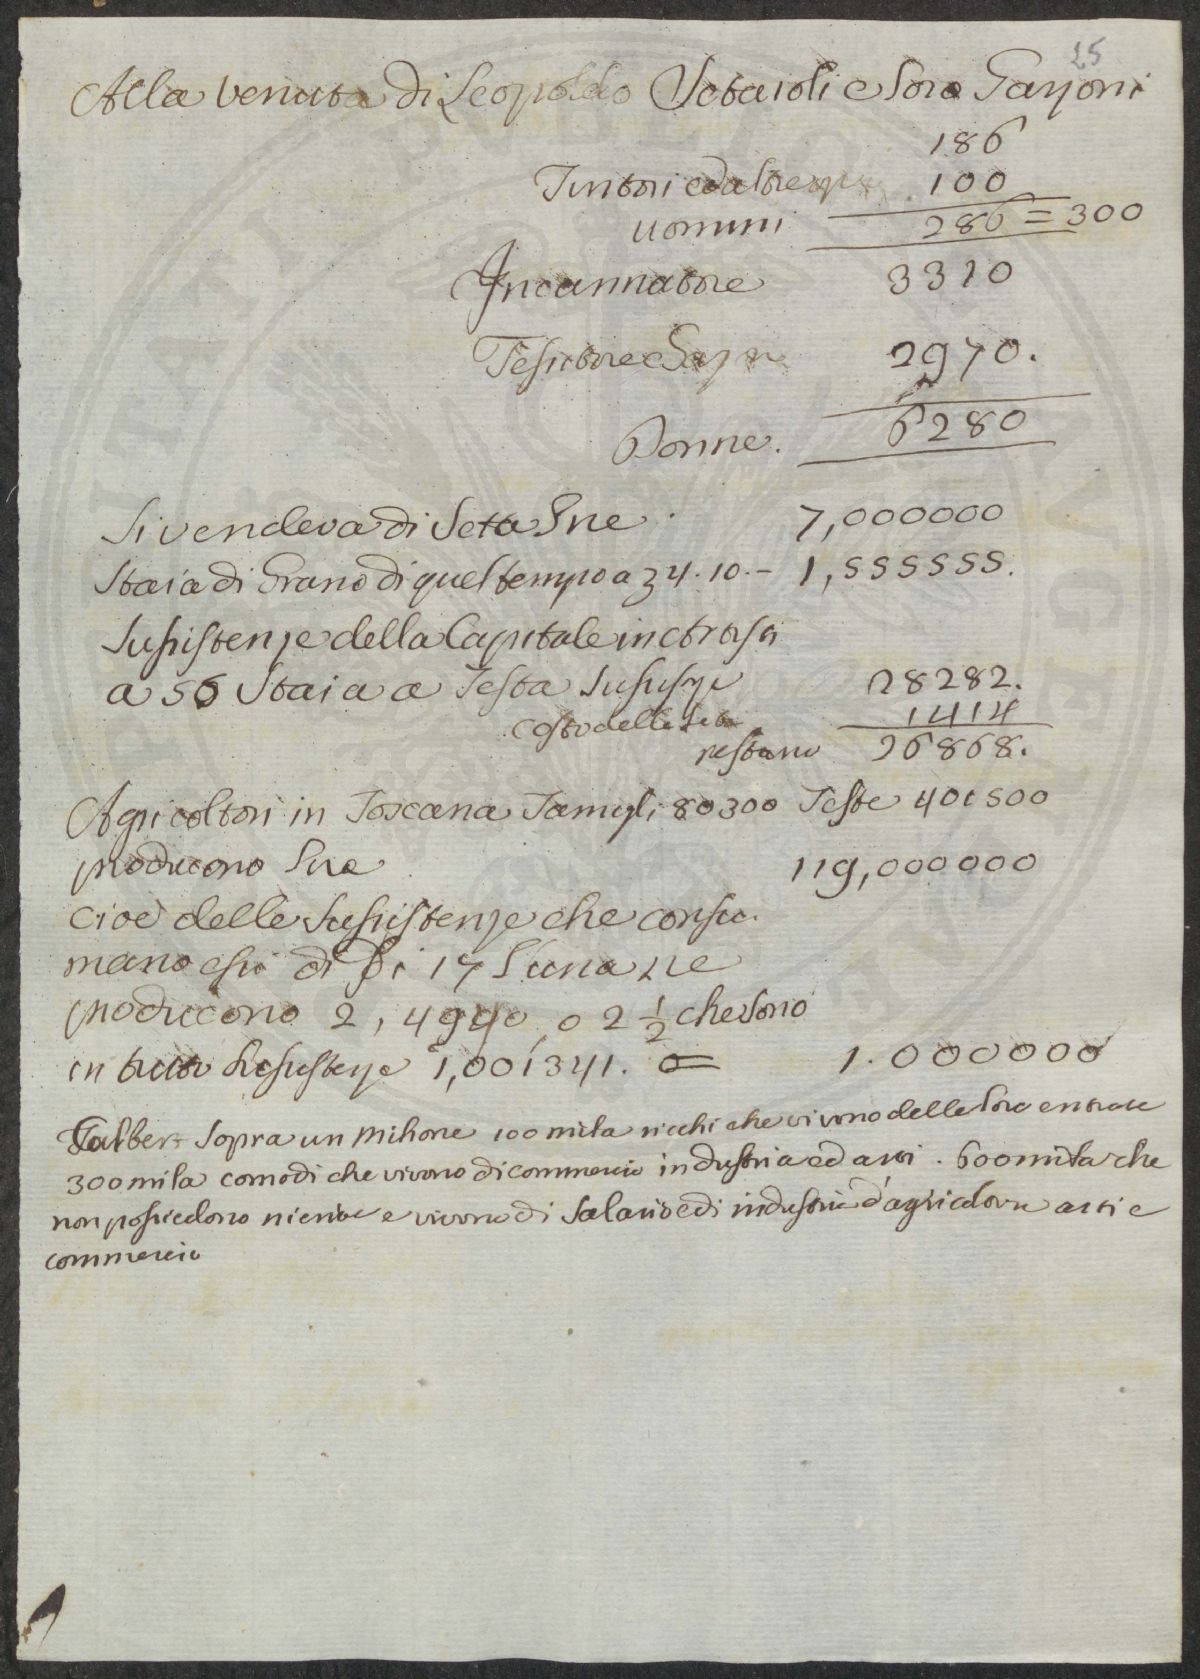 25
Alla venuta di Leopoldo Setaioli e loro Garzoni
186
Tintori ed altre 100
uomini 286 = 300
Incannatore 3310
Tessitore e 2970.
Donne. 6280
Si vendeva di Seta 7,000000
Staia di Grano di quel tempo a 4.10.- 1,555555.
Sussistenze della Capitale in
a 55 Staia a Testa 28282.
costo delle Sete 1414
restano 26868.
Agricoltori in Toscana Famigli 80300 Teste 401500
producono Lire 119,000000
cioè delle Sussistenze che consu-
mano essi di 17 l'una ne
producono 2, 4940 o 2 1/2 che sono
in tutto Sussistenze 1,001341. = 1.000000
Sopra un Milione 100 mila ricchi che vivono delle loro entrate
300 mila comodi che vivono di commercio industria ed arti. 600 mila che
non possiedono niente e vivono di Salario e di industria d'agricoltura arti e
commercio